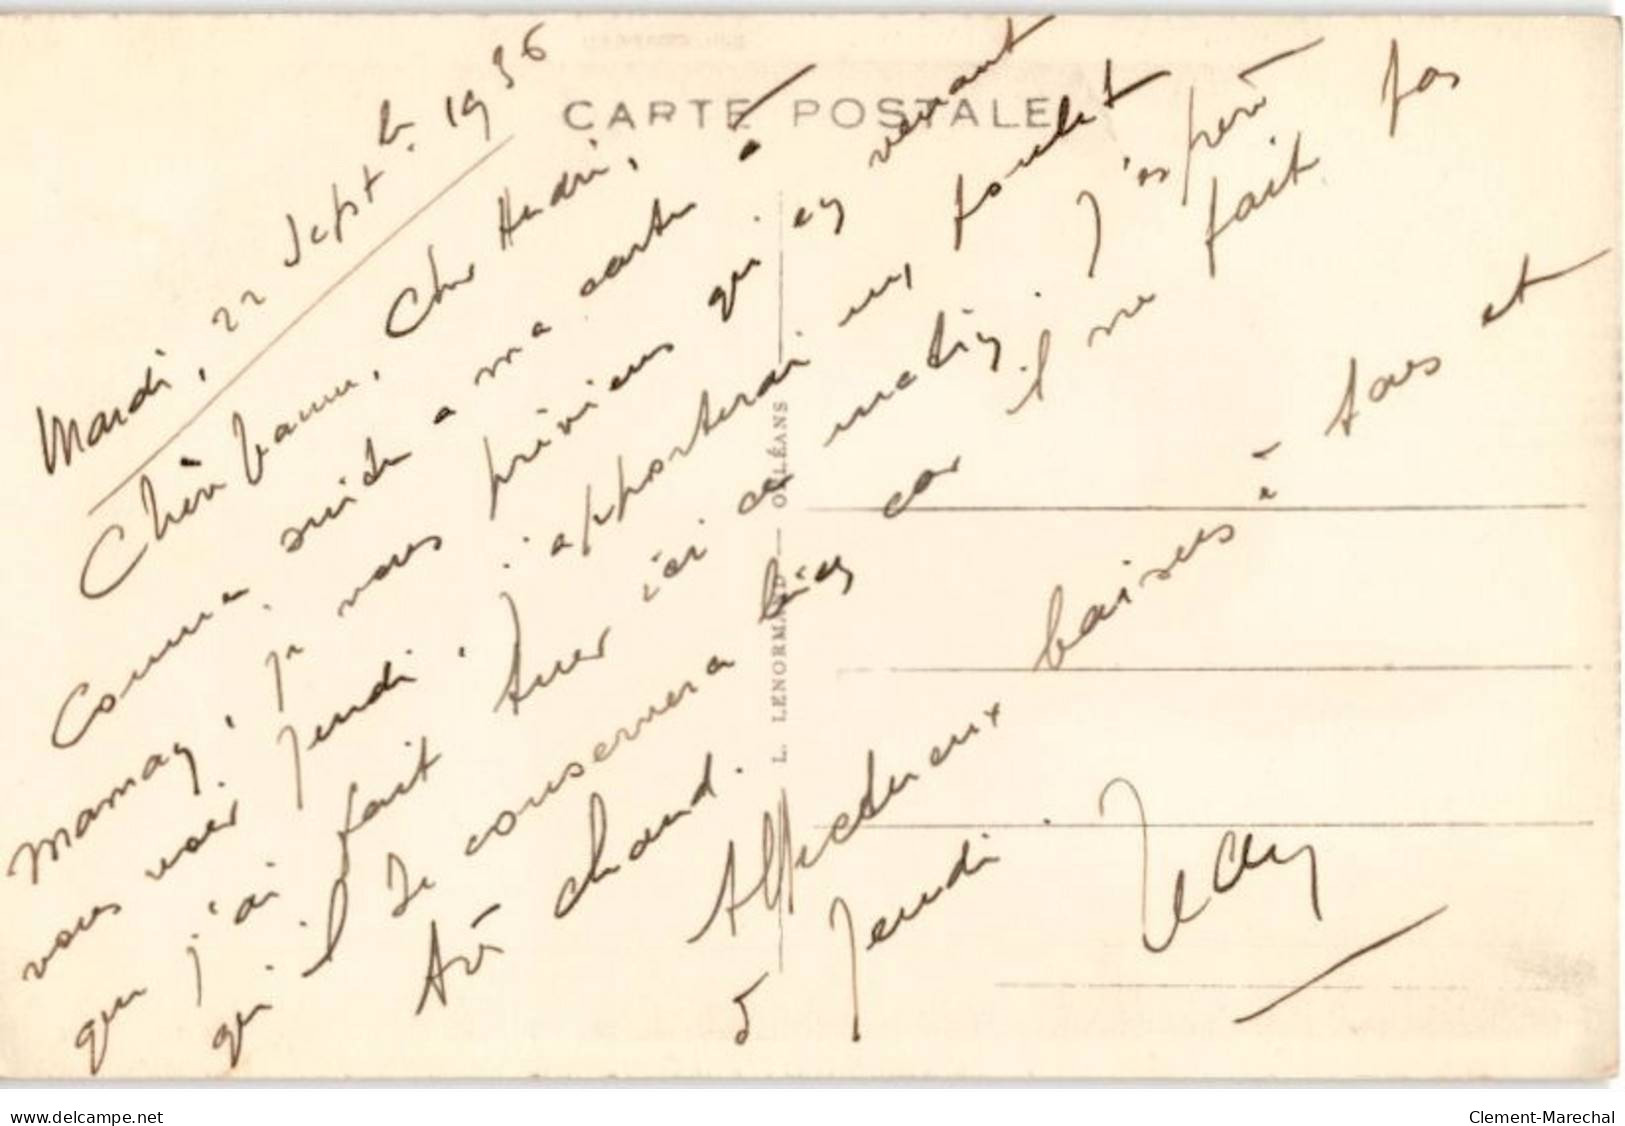 CARTE POSTALE
Mardi, 22 Septbre 1936
Chère Jeanne, Cher Henri,
Comme suite à ma carte à
Maman, je vous préviens qu'en venant
vous voir Jeudi, j'apporterai un poulet
que j'ai fait tuer ici ce matin. J'espère
qu'il se conservera bien car il ne fait pas
très chaud.
Affectueux baisers à tous et
à Jeudi.
L. LENORMAND — ORLÉANS
www.delcampe.net
Clement-Marechal